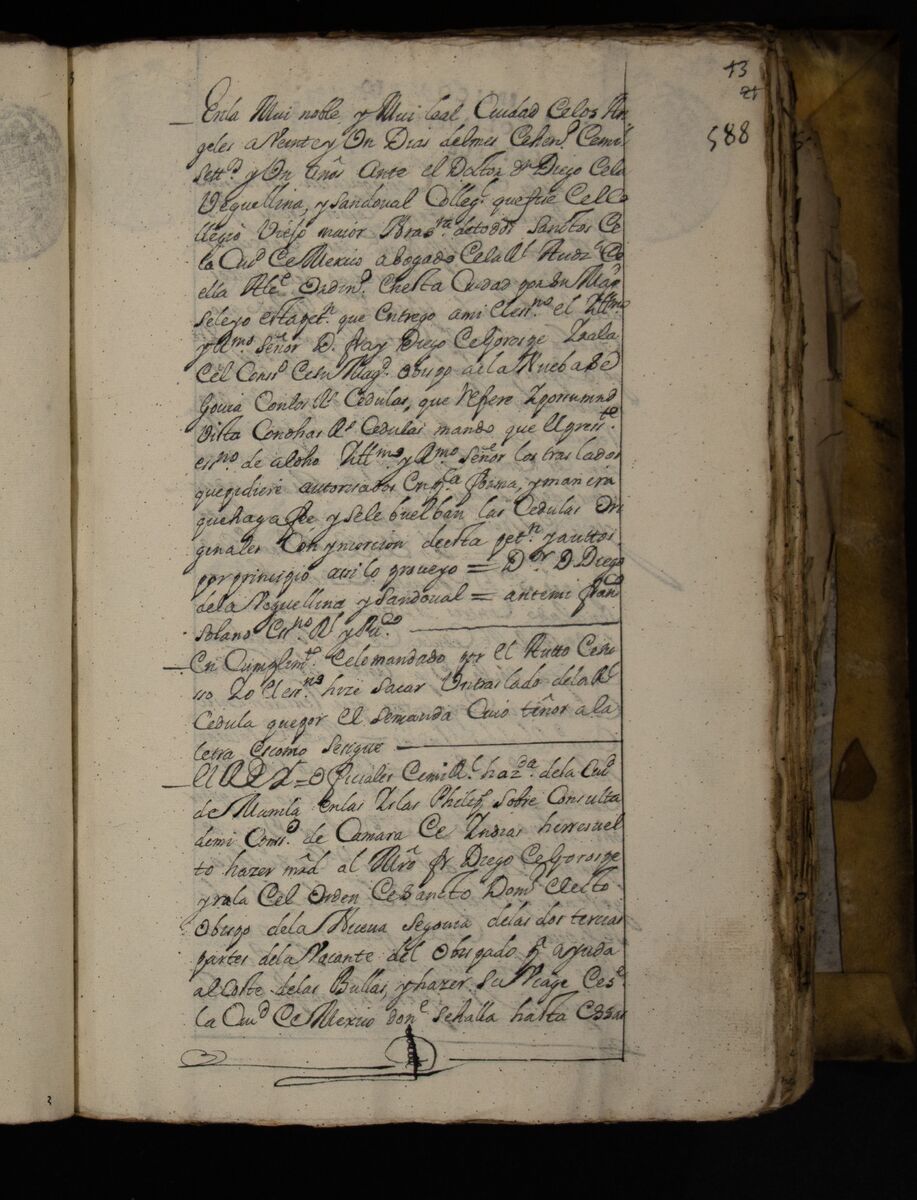 13
21
588
En la Mui noble, y Mui leal Ciudad Celos An
geles a Veinte y Un Dias del mes Ce hen.º Cemil
sett.s y Un años Ante el Doctor Dn Diego Cela
Veguellina, y Sandoval Colleg.l que fue Cel Co
llegio Viejo maior de todos Sanctos Ce
la Ciu.d Ce Mexico abogado Cela R.l Aud.a Ce
ella Alc.e Ordin.o en esta Ciudad por su Mag.d
seleyo esta pet.n que entrego ami el ess.no el Ill.mo
y R.mo Señor D. fray Diego Ce Gorospe Irala
Cel Cons.o Ce su Mag.d Obispo de la Nueba Se
govia Con las R.s Cedulas, que refiere Y por su md
Vista Con dhas R.s Cedulas mando que el pres.te
es.no de a dho Ill.mo y R.mo Señor los traslados
que pidiere autorisados en p.ca forma, y manera
que haga fee y sele buelban las Cedulas Ori
ginales Con ynsercion de esta pet.n y autto
por principio assi lo proveyo = D.or D Diego
de la Veguellina y Sandoval = ante mi fran.co
Solano Es.no R.l y Pu.co
En Cumplim.to Celo mandado por el Autto Cesu
so Yo el es.no hize sacar Un traslado de la R.l
Cedula que por el se manda Cuio tenor a la
letra es como se sigue
El REY = Oficiales Cemi R.l haz.da de la Ciu.d
de Manila en las Yslas Philip.s sobre Consulta
de mi Cons.o de Camara Ce Yndias he resuel
to hazer md al Mro fr Diego Ce Gorospe
yrala Cel Orden Ce Sancto Dom.o electo
Obispo de la Nueva Segovia de las dos tercias
partes de la Vacante del Obispado p.a ayuda
al Coste de las Bullas, y hazer su Viage Ces.e
la Ciu.d Ce Mexico don.e se halla hasta Essas